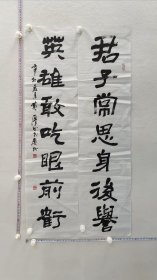 君子常思身後譽
英雄敢吃眼前虧